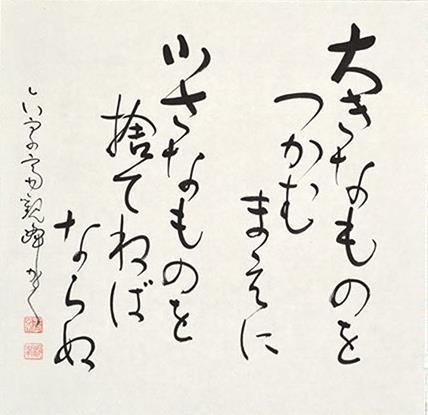 大きなものを
つかむ
まえに
小さなものを
捨てねば
ならぬ